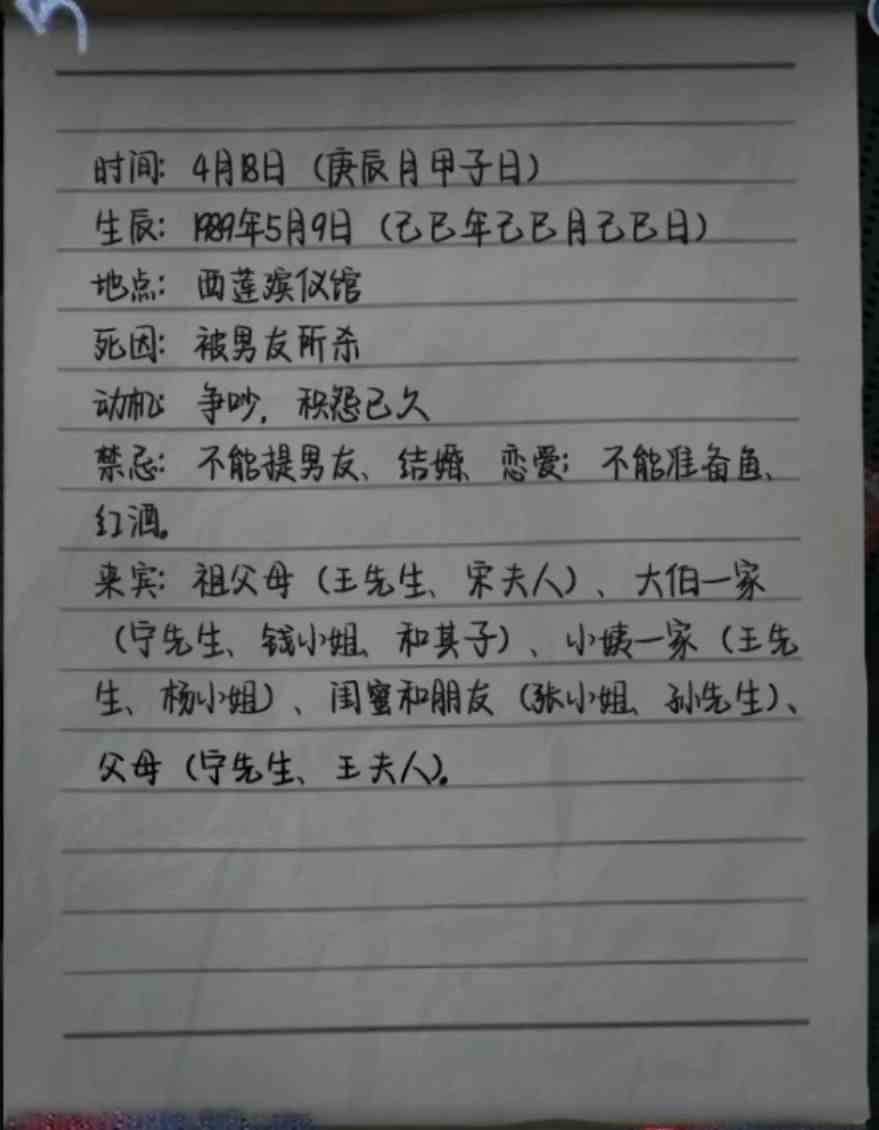 时间：4月18日（庚辰月甲子日）
生辰：1989年5月9日（己巳年己巳月己巳日）
地点：西莲殡仪馆
死因：被男友所杀
动机：争吵，积怨已久
禁忌：不能提男友、结婚、恋爱；不能准备鱼、
红酒。
来宾：祖父母（王先生、宋夫人）、大伯一家
（宁先生、钱小姐、和其子）、小姨一家（王先
生、杨小姐）、闺蜜和朋友（张小姐、孙先生）、
父母（宁先生、王夫人）。